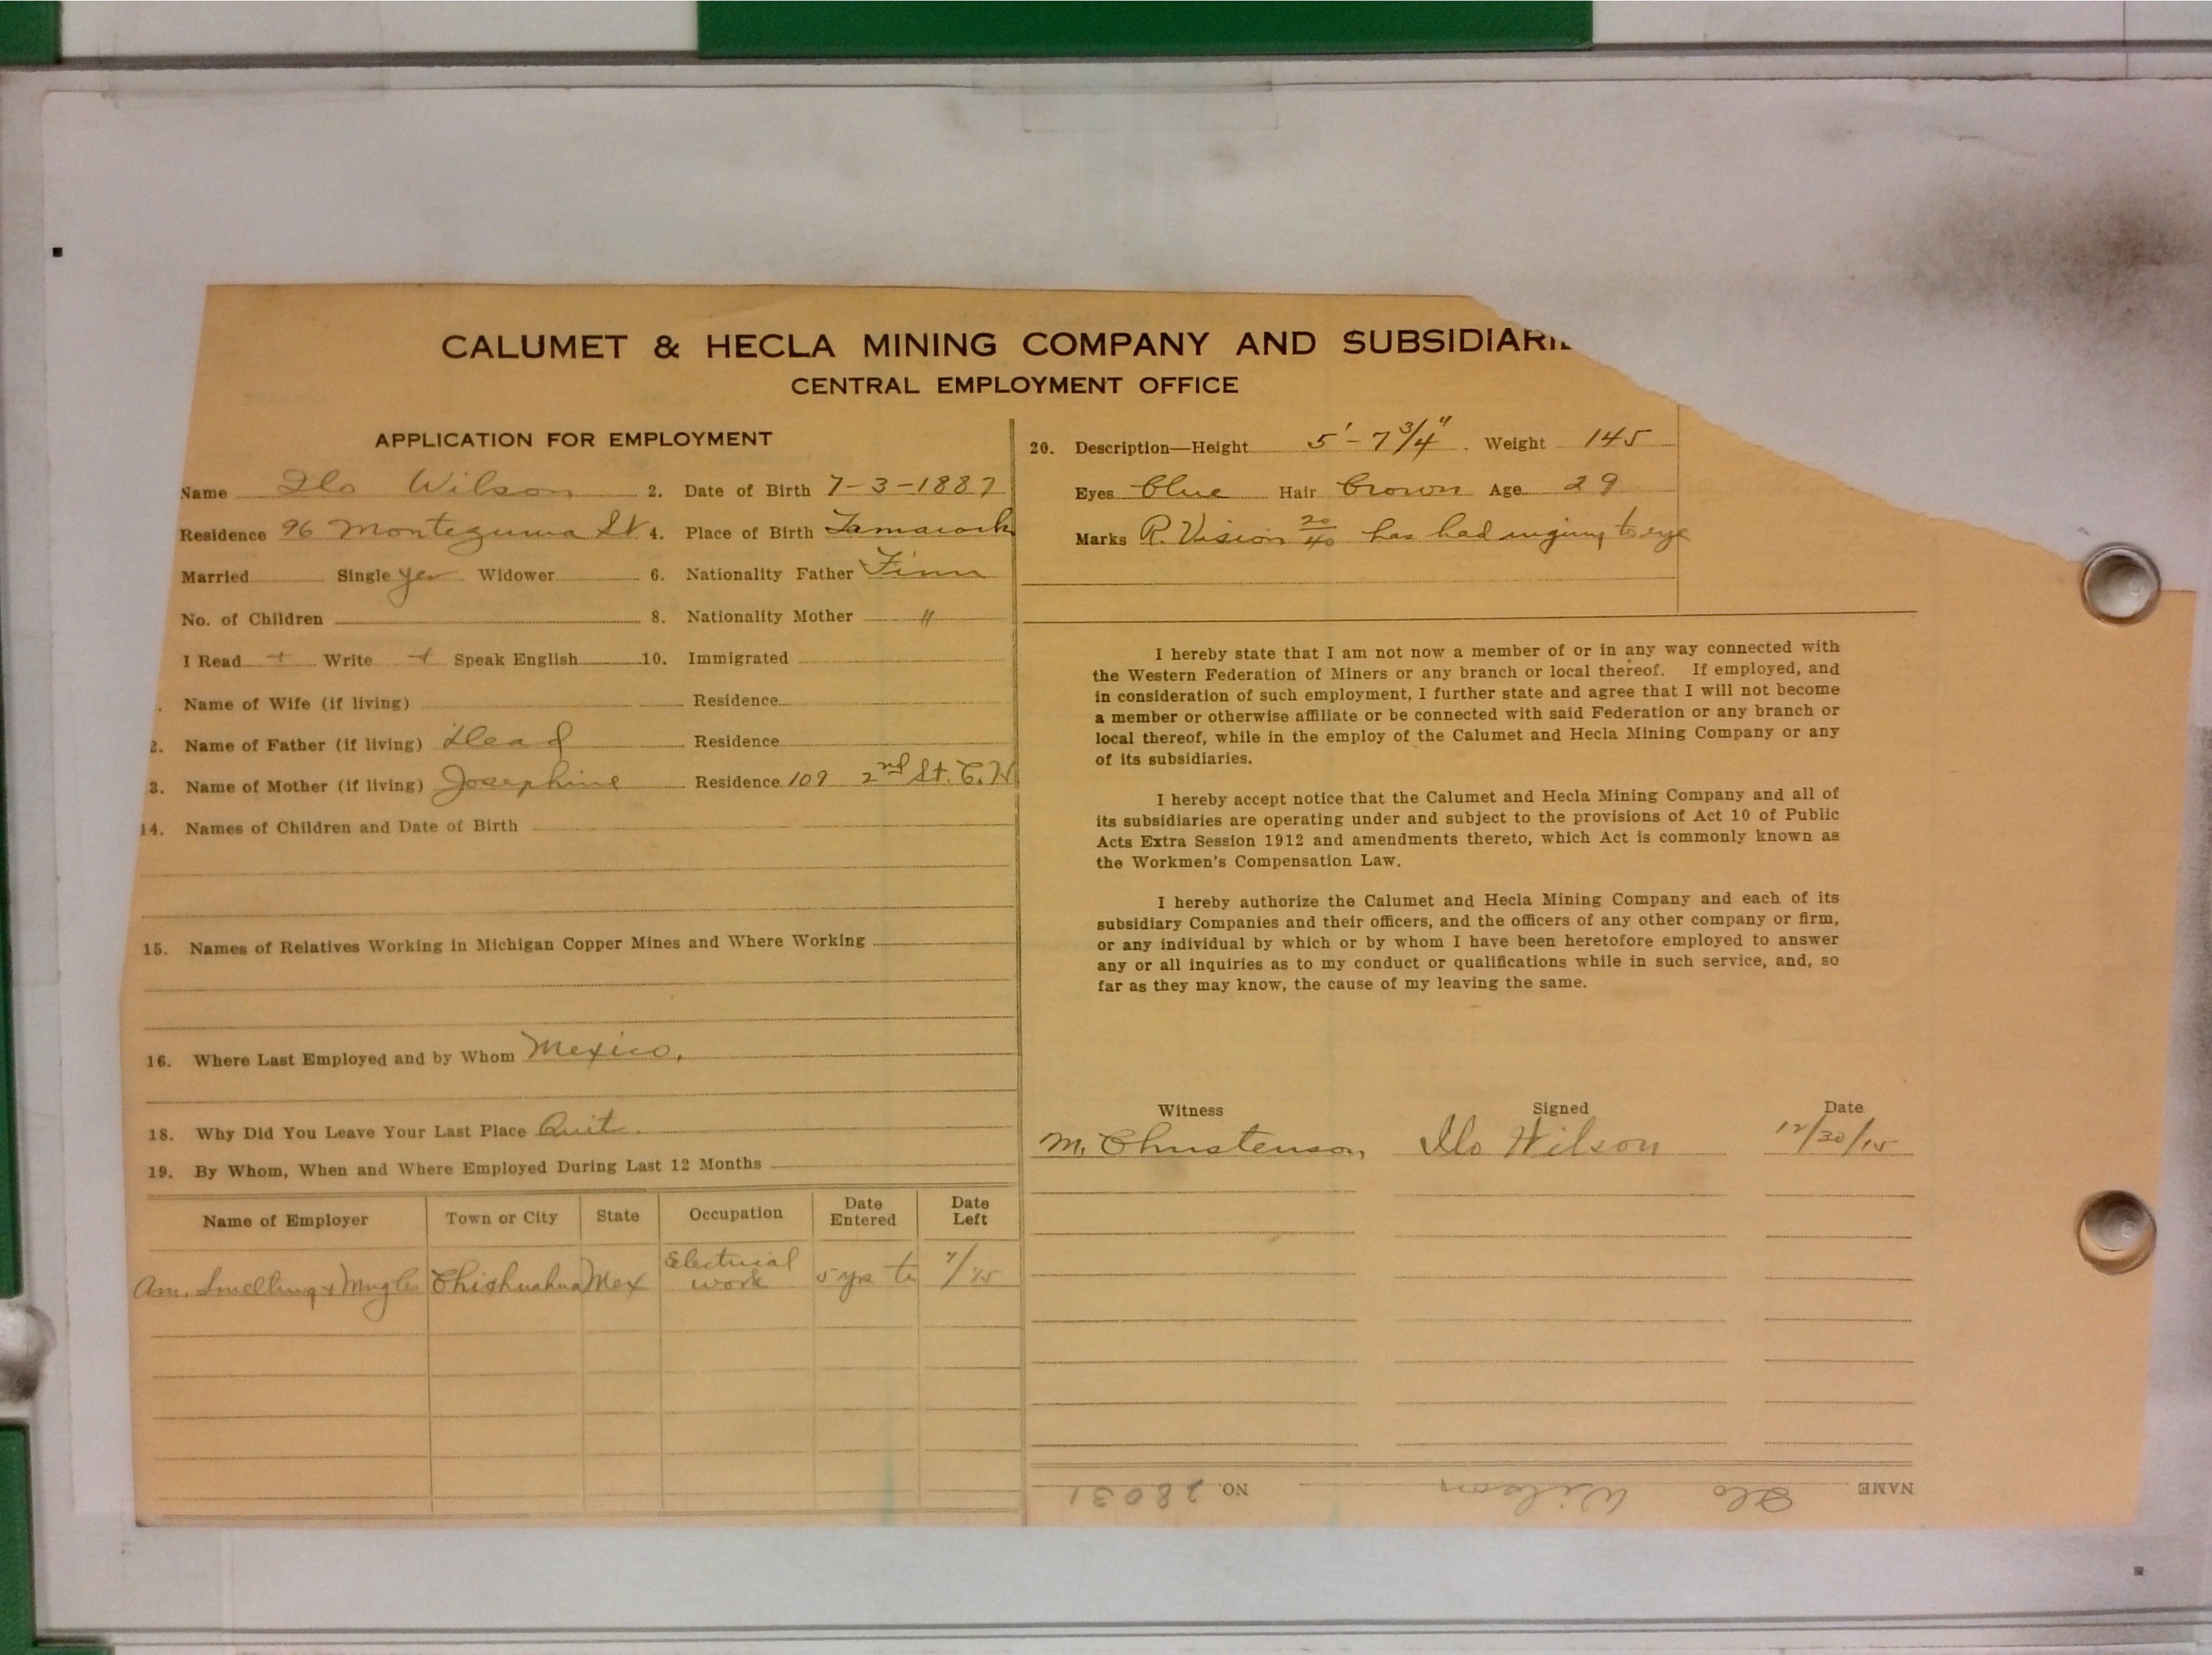 CALUMET & HECLA MINING COMPANY AND SUBSIDIARIE
CENTRAL EMPLOYMENT OFFICE
APPLICATION FOR EMPLOYMENT
Name Ilo Wilson 2. Date of Birth 7-3-1887
Residence 96 Montezuma St 4. Place of Birth Tamarack
Married Single yes Widower 6. Nationality Father Finn
No. of Children 8. Nationality Mother "
I Read + Write + Speak English 10. Immigrated
. Name of Wife (if living) Residence
2. Name of Father (if living) Dead Residence
3. Name of Mother (if living) Josephine Residence 109 2nd St.
14. Names of Children and Date of Birth
15. Names of Relatives Working in Michigan Copper Mines and Where Working
16. Where Last Employed and by Whom Mexico.
18. Why Did You Leave Your Last Place Quit.
19. By Whom, When and Where Employed During Last 12 Months
Name of Employer Town or City State Occupation Date Entered Date Left
Am. Smelting + Chishuahua Mex Electrical work 5 yrs to 7/15
20. Description—Height 5'-7 3/4" . Weight 145
Eyes Blue Hair Brown Age 29
Marks R. Vision 20/40 has had injury to eye
I hereby state that I am not now a member of or in any way connected with
the Western Federation of Miners or any branch or local thereof. If employed, and
in consideration of such employment, I further state and agree that I will not become
a member or otherwise affiliate or be connected with said Federation or any branch or
local thereof, while in the employ of the Calumet and Hecla Mining Company or any
of its subsidiaries.
I hereby accept notice that the Calumet and Hecla Mining Company and all of
its subsidiaries are operating under and subject to the provisions of Act 10 of Public
Acts Extra Session 1912 and amendments thereto, which Act is commonly known as
the Workmen's Compensation Law.
I hereby authorize the Calumet and Hecla Mining Company and each of its
subsidiary Companies and their officers, and the officers of any other company or firm,
or any individual by which or by whom I have been heretofore employed to answer
any or all inquiries as to my conduct or qualifications while in such service, and, so
far as they may know, the cause of my leaving the same.
Witness Signed Date
M. Christenson Ilo Wilson 12/30/15
NAME Ilo Wilson NO. 28031